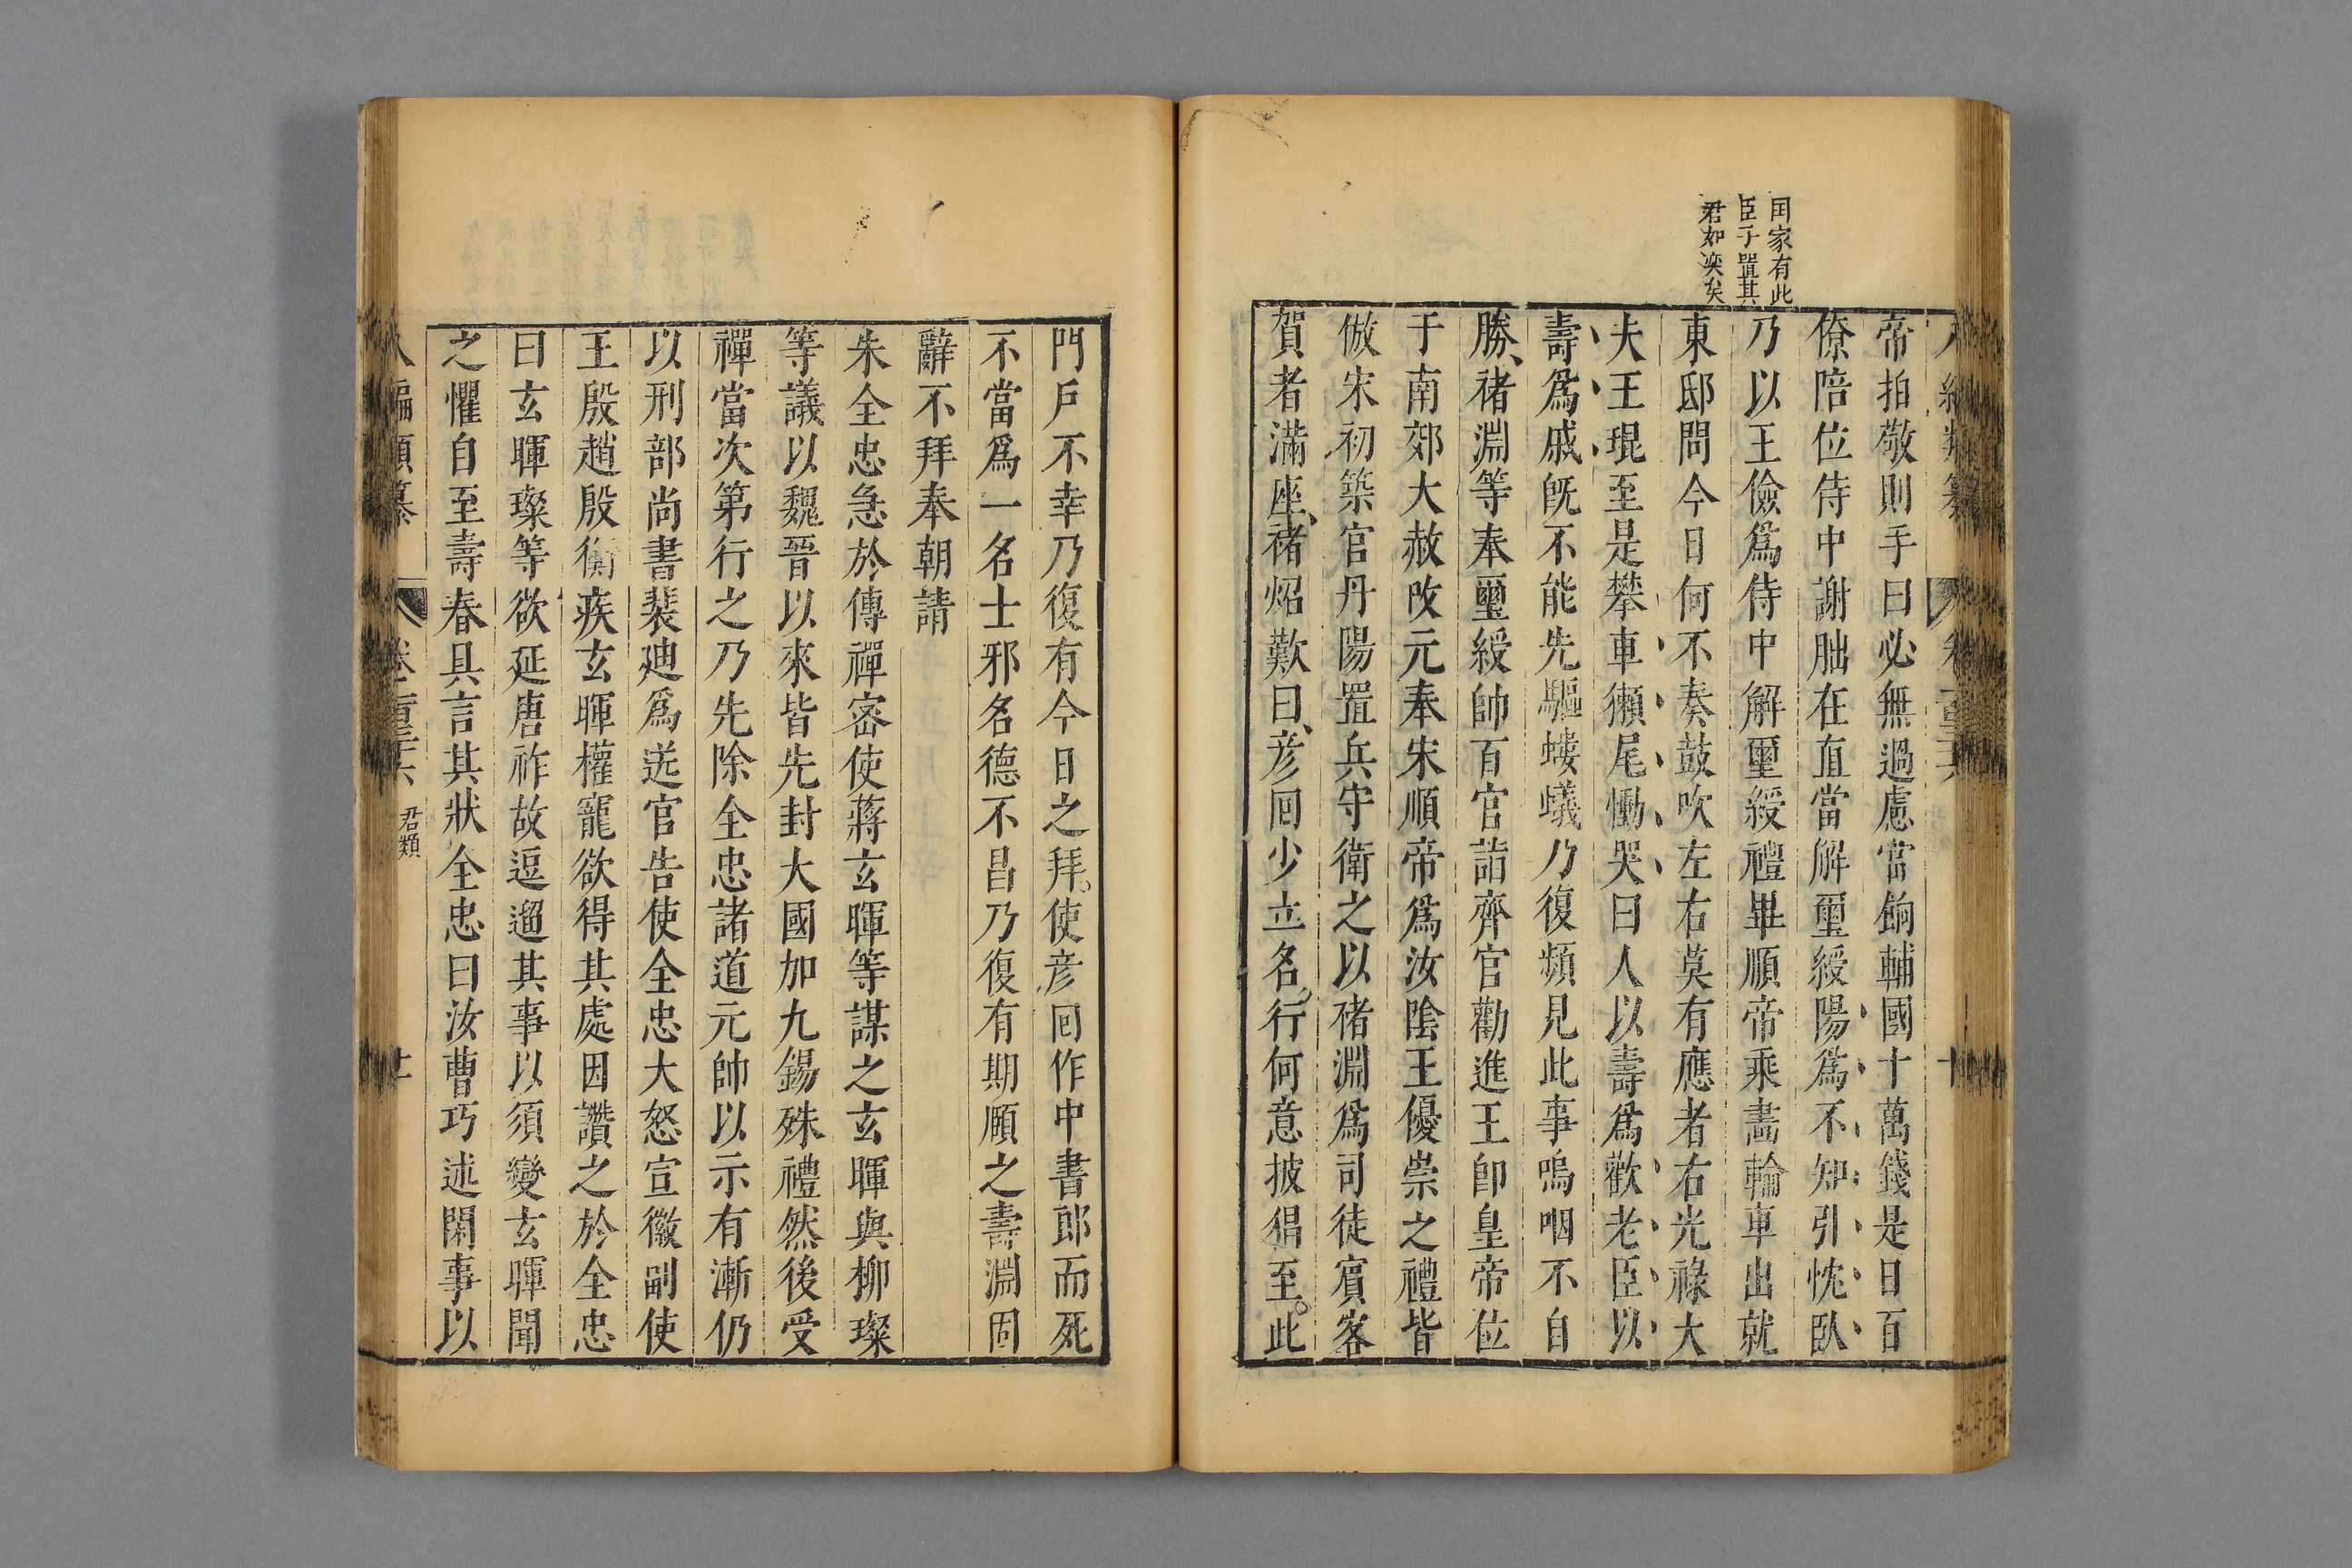 囯家有此
臣子置其
君如奕矣
帝拍敬則手曰必無過慮當餉輔國十萬錢是日百
僚陪位侍中謝朏在直當解璽綬陽爲不知引枕臥
乃以王儉爲侍中解璽綬禮畢順帝乘畵輪車出就
東邸問今日何不奏鼓吹左右莫有應者右光祿大
夫王琨至是攀車獺尾慟哭曰人以壽爲歡老臣以
壽爲戚旣不能先驅螻蟻乃復頻見此事嗚咽不自
勝褚淵等奉璽綬帥百官詣齊官勸進王卽皇帝位
于南郊大赦改元奉宋順帝爲汝陰王優崇之禮皆
倣宋初築官丹陽置兵守衛之以褚淵爲司徒賓客
賀者滿座褚炤歎曰彦囘少立名行何意披猖至此
門戶不幸乃復有今日之拜使彦囘作中書郎而死
不當爲一名士邪名德不昌乃復有期頤之壽淵固
辭不拜奉朝請
朱全忠急於傳禪密使蔣玄暉等謀之玄暉與柳璨
等議以魏晉以來皆先封大國加九錫殊禮然後受
禪當次第行之乃先除全忠諸道元帥以示有漸仍
以刑部尚書裴廸爲送官告使全忠大怒宣徽副使
王殷趙殷衡疾玄暉權寵欲得其處因讚之於全忠
曰玄暉璨等欲延唐祚故逗遛其事以須變玄暉聞
之懼自至壽春具言其狀全忠曰汝曹巧述閑事以
八編類纂 卷 君類